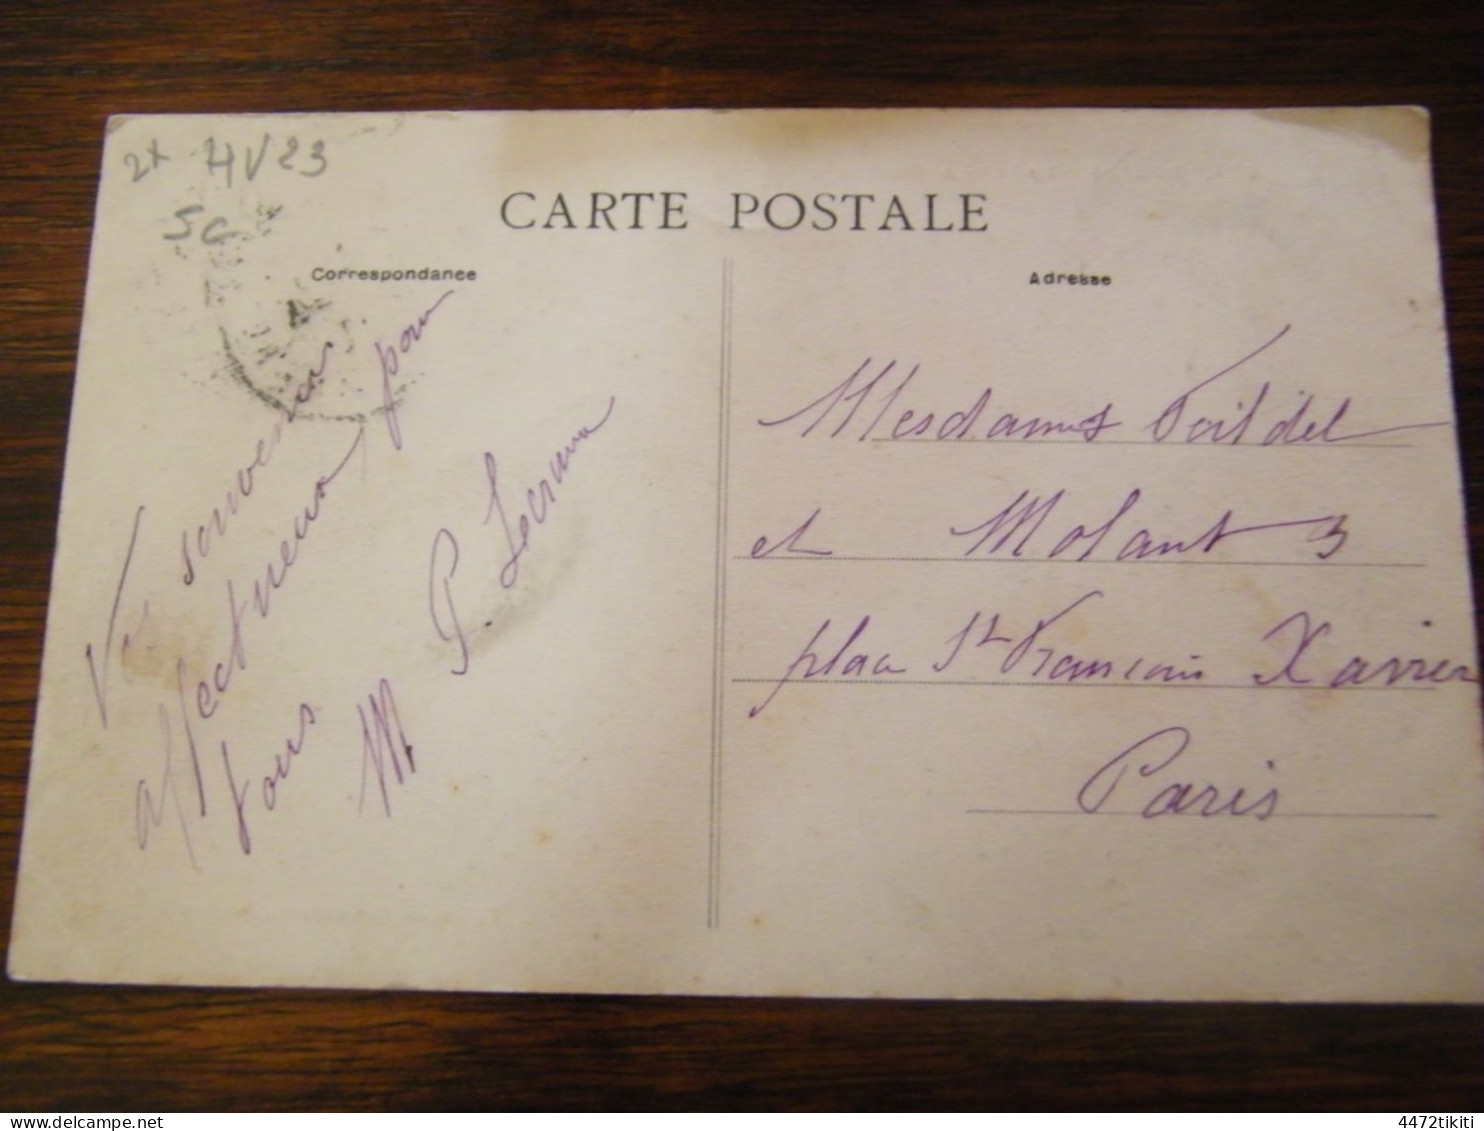 2x HV23
SG
CARTE POSTALE
Correspondance
souvenirs
affectueux pour
tous
M P.
Adresse
Mesdames
et Molant 3
place St François Xavier
Paris
delcampe.net
4472tikiti